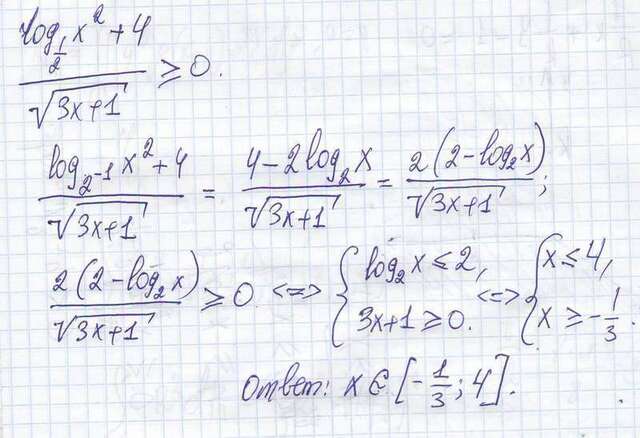 (log_{1/2} x² + 4) / √(3x+1) ≥ 0.
(log_{2⁻¹} x² + 4) / √(3x+1) = (4 - 2log₂x) / √(3x+1) = 2(2 - log₂x) / √(3x+1);
2(2 - log₂x) / √(3x+1) ≥ 0 <=> { log₂x ≤ 2, 3x+1 ≥ 0. <=> { x ≤ 4, x ≥ -1/3.
Ответ: x ∈ [-1/3; 4].